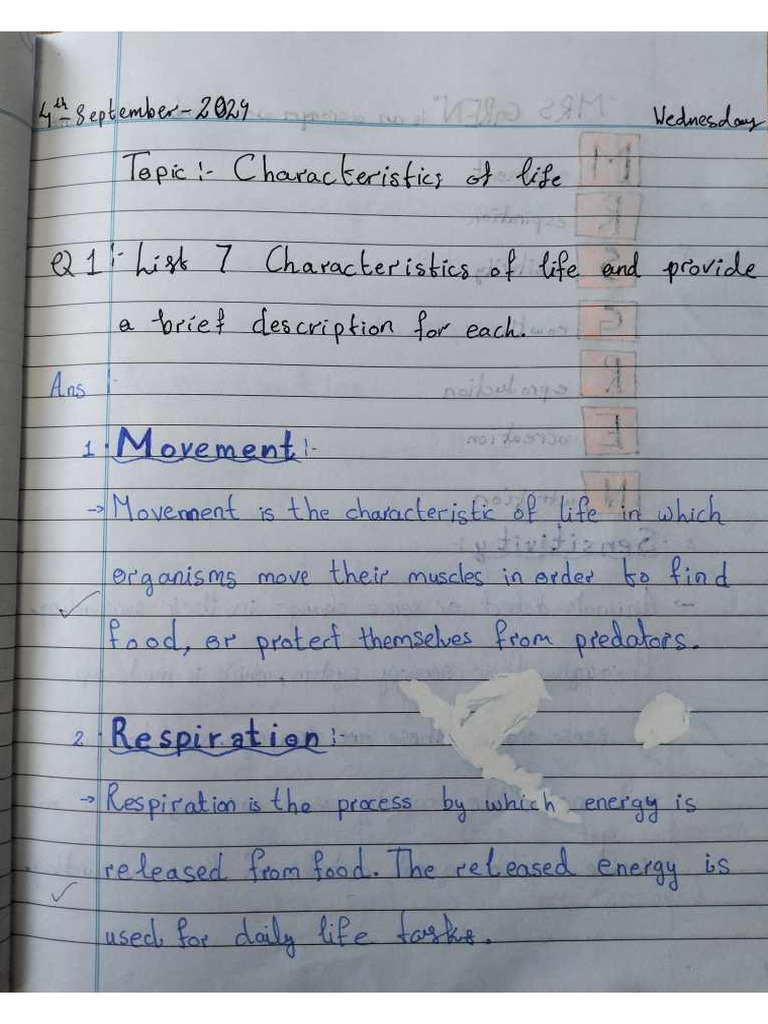 4th-September-2024 Wednesday
Topic:- Characteristics of life
Q1:- List 7 Characteristics of life and provide
a brief description for each.
Ans:-
1. Movement:-
→ Movement is the characteristic of life in which
organisms move their muscles in order to find
food, or protect themselves from predators.
2. Respiration:-
→ Respiration is the process by which energy is
released from food. The released energy is
used for daily life tasks.